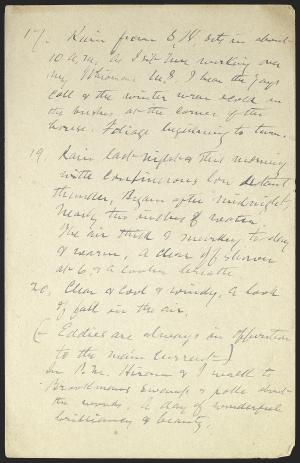 17. Rain from E, N. sets in about
10 a.m. As I sit here working over
my Whitman M.S. I hear the jays
call & the winter wren scold in
the bushes at the corner of the
house. Foliage beginning to turn.
19. Rain last night & this morning
with continuous low distant
thunder. Began after midnight,
nearly two inches of water.
The air thick & murky to day
& warm. A clear off shower
at 6, & a cooler breath
20. Clear & cool & windy. A look
of fall in the air.
(- Eddies are always in opposition
to the main current -)
In P.M. Hiram & I walk to
Brookmans Swamp & poke about
the woods. A day of wonderful
brilliancy & beauty.